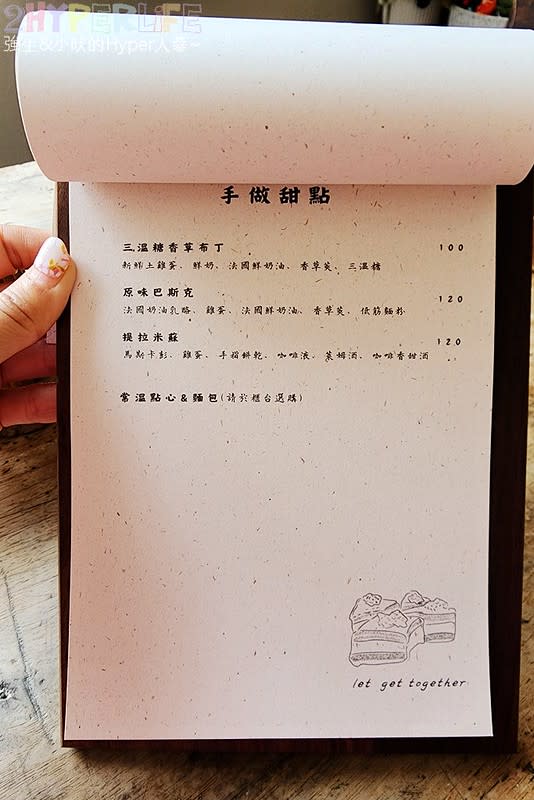 2HYPERLIFE
強生&小吠的Hyper人蔘~
手做甜點
三溫糖香草布丁 100
新鮮土雞蛋、鮮奶、法國鮮奶油、香草莢、三溫糖
原味巴斯克 120
法國奶油乳酪、雞蛋、法國鮮奶油、香草莢、低筋麵粉
提拉米蘇 120
馬斯卡彭、雞蛋、手指餅乾、咖啡液、萊姆酒、咖啡香甜酒
常溫點心&麵包(請於櫃台選購)
let get together